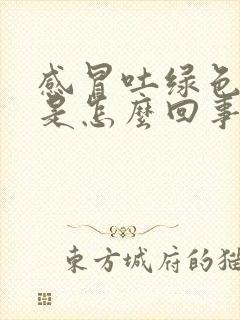 感冒吐绿色
是怎麼回事
東方城府的猫